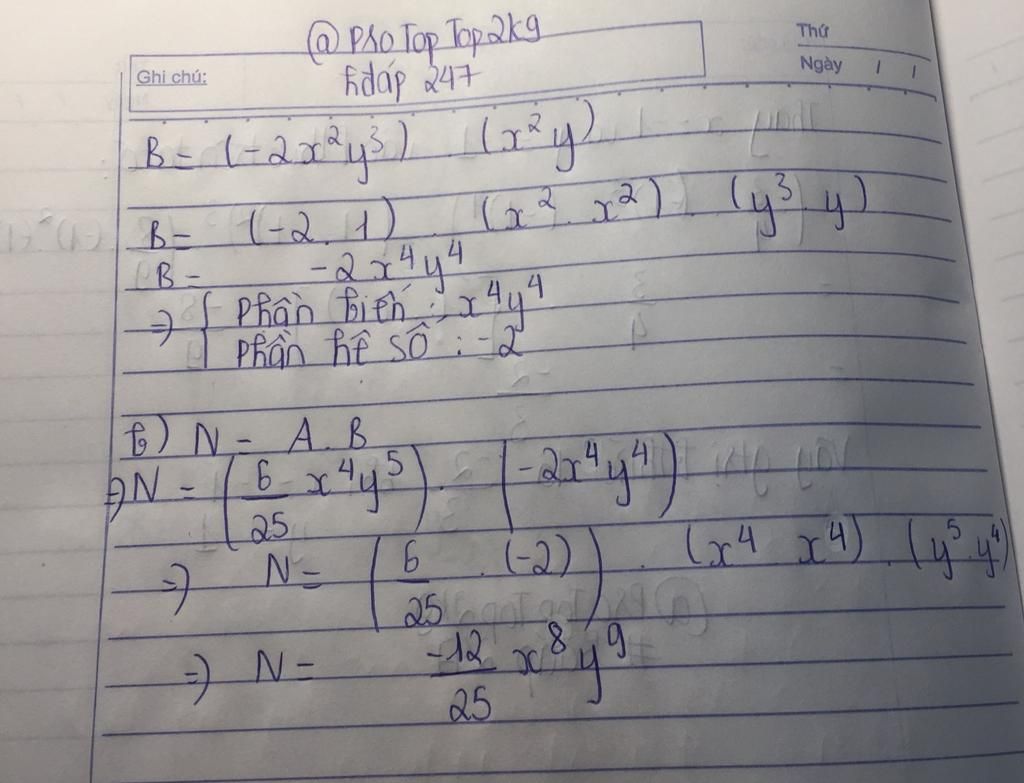 @PsoTopTop2k9
Thứ
Ghi chú:
hđáp 247
Ngày / /
B = (-2x²y³) (x²y)
B = (-2.1) . (x² . x²) . (y³ . y)
B = -2x⁴y⁴
=> { Phần biến : x⁴y⁴
Phần hệ số : -2
b) N = A.B
=> N = (6/25 x⁴y⁵) . (-2x⁴y⁴)
=> N = (6/25 . (-2)) . (x⁴ x⁴) . (y⁵.y⁴)
=> N = -12/25 x⁸y⁹